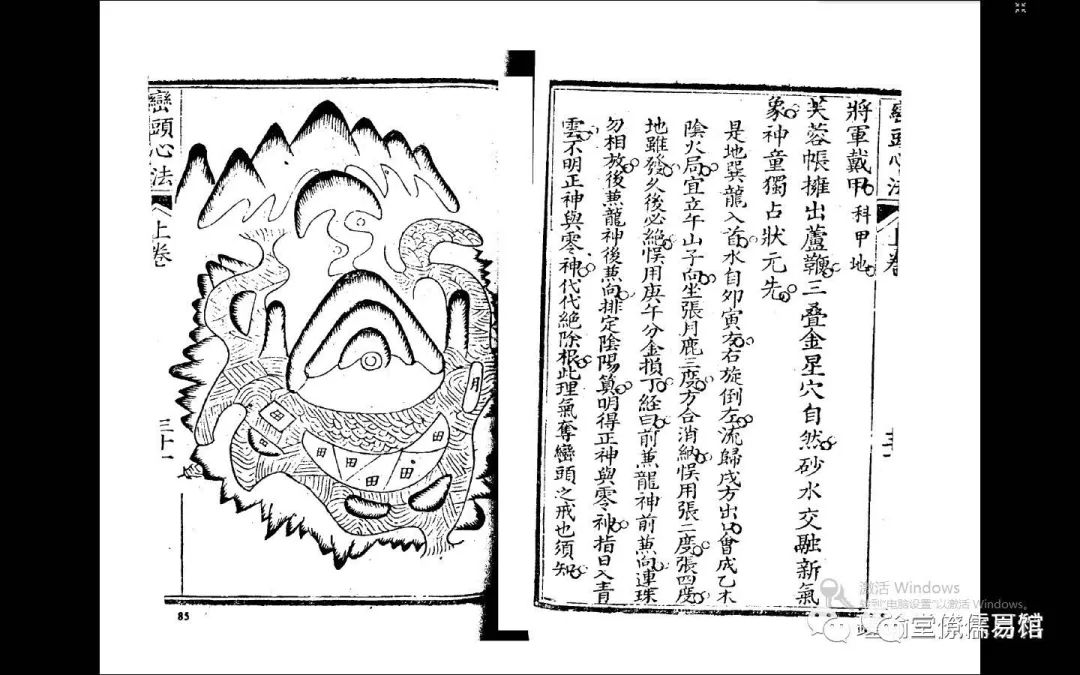 巒頭心法
上卷
將軍戴甲 科甲地
芙蓉帳擁出蘆鞭三叠金星穴自然砂水交融新氣
象神童獨占狀元先
是地巽龍入首水自夘寅左右旋倒左流歸戌方出口會成乙木
陰火局宜立午山子向坐張月鹿三度方合消納悞用張二度張四度
地雖發久後必絶悞用庚午分金損丁經曰前兼龍神前兼向連珠
勿相放後兼龍神後兼向排定陰陽算明得正神與零神指日入青
雲不明正神與零神代代絶除根此理氣奪巒頭之戒也須知
巒頭心法
上卷
三十一
月
田
田
田
田
田
田
田
85
激活 Windows
轉到"电脑设置"以激活 Windows。
堂僚儒易馆